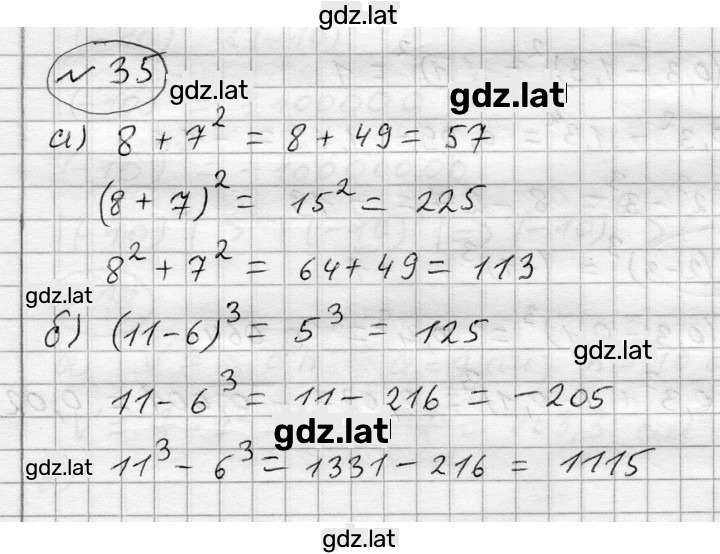 gdz.lat
№ 35
gdz.lat
gdz.lat
а) 8 + 7² = 8 + 49 = 57
(8 + 7)² = 15² = 225
8² + 7² = 64 + 49 = 113
gdz.lat
б) (11 - 6)³ = 5³ = 125
gdz.lat
11 - 6³ = 11 - 216 = -205
gdz.lat
gdz.lat
11³ - 6³ = 1331 - 216 = 1115
gdz.lat